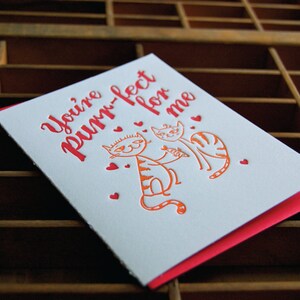 You're
purr-fect
for me